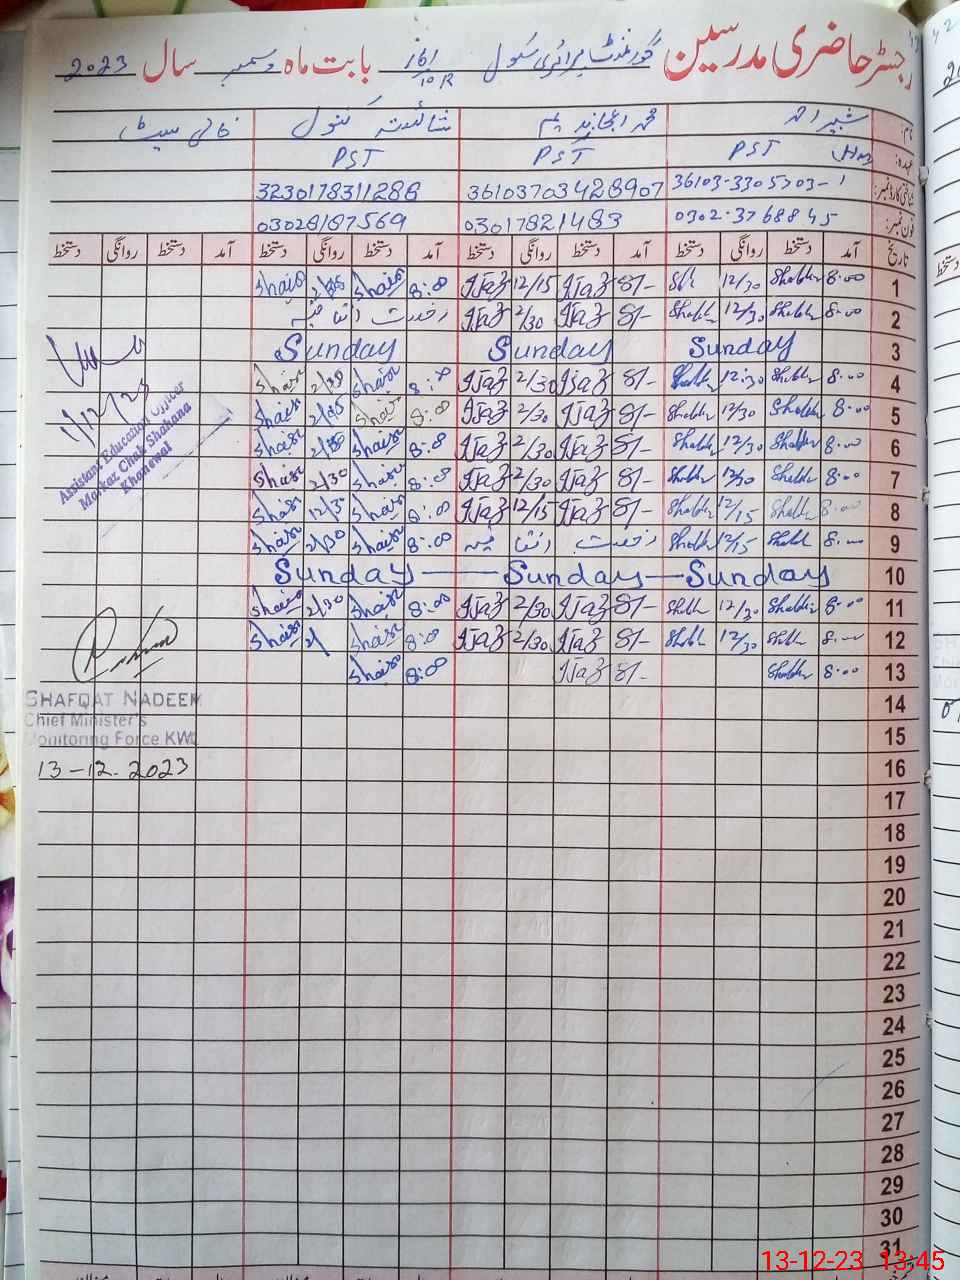 رجسٹر حاضری مدرسین گورنمنٹ پرائمری سکول 161/10R بابت ماہ دسمبر سال 2023
نام: شبیر احمد محمد اعجاز ندیم شائستہ کنول خالی سیٹ
عہدہ: PST PST PST
شناختی کارڈ نمبر: 36103-3305303-1 36103703428907 3230178311288
فون نمبر: 0302-3768845 03017821483 03028187569
تاریخ آمد دستخط روانگی دستخط آمد دستخط روانگی دستخط آمد دستخط روانگی دستخط آمد دستخط روانگی دستخط
1 8:00 Shabbir 12/30 8/- IJaz 12/15 IJaz 8:00 Shaisa Shaisa
2 8:00 Shabbir 12/30 Shabbir 8/- IJaz 2/30 IJaz رخصت اتفاقیہ
3 Sunday Sunday Sunday
4 8:00 Shabbir 12:30 Shabbir 8/- IJaz 2/30 IJaz 8:00 Shaisa 2/30 Shaisa
5 8:00 Shabbir 12/30 Shabbir 8/- IJaz 2/30 IJaz 8:00 Shaisa Shaisa
6 8:00 Shabbir 12/30 Shabbir 8/- IJaz 2/30 IJaz 8:00 Shaisa Shaisa
7 8:00 Shabbir 12/30 Shabbir 8/- IJaz 2/30 IJaz 8:00 Shaisa 2/30 Shaisa
8 8:00 Shabbir 12/15 Shabbir 8/- IJaz 12/15 IJaz 8:00 Shaisa Shaisa
9 8:00 Shabbir 12/15 Shabbir رخصت اتفاقیہ 8:00 Shaisa 2/30 Shaisa
10 Sunday Sunday Sunday
11 8:00 Shabbir 12/30 Shabbir 8/- IJaz 2/30 IJaz 8:00 Shaisa 2/30 Shaisa
12 8:00 Shabbir 12/30 Shabbir 8/- IJaz 2/30 IJaz 8:00 Shaisa 2/ Shaisa
13 8:00 Shabbir 8/- IJaz 8:00 Shaisa
14
15
16
17
18
19
20
21
22
23
24
25
26
27
28
29
30
31
1/12/23
Assistant Education Officer
Markaz Chak Shahana
Khanewal
SHAFQAT NADEEM
Chief Minister's
Monitoring Force KWL
13-12-2023
13-12-23 13:45